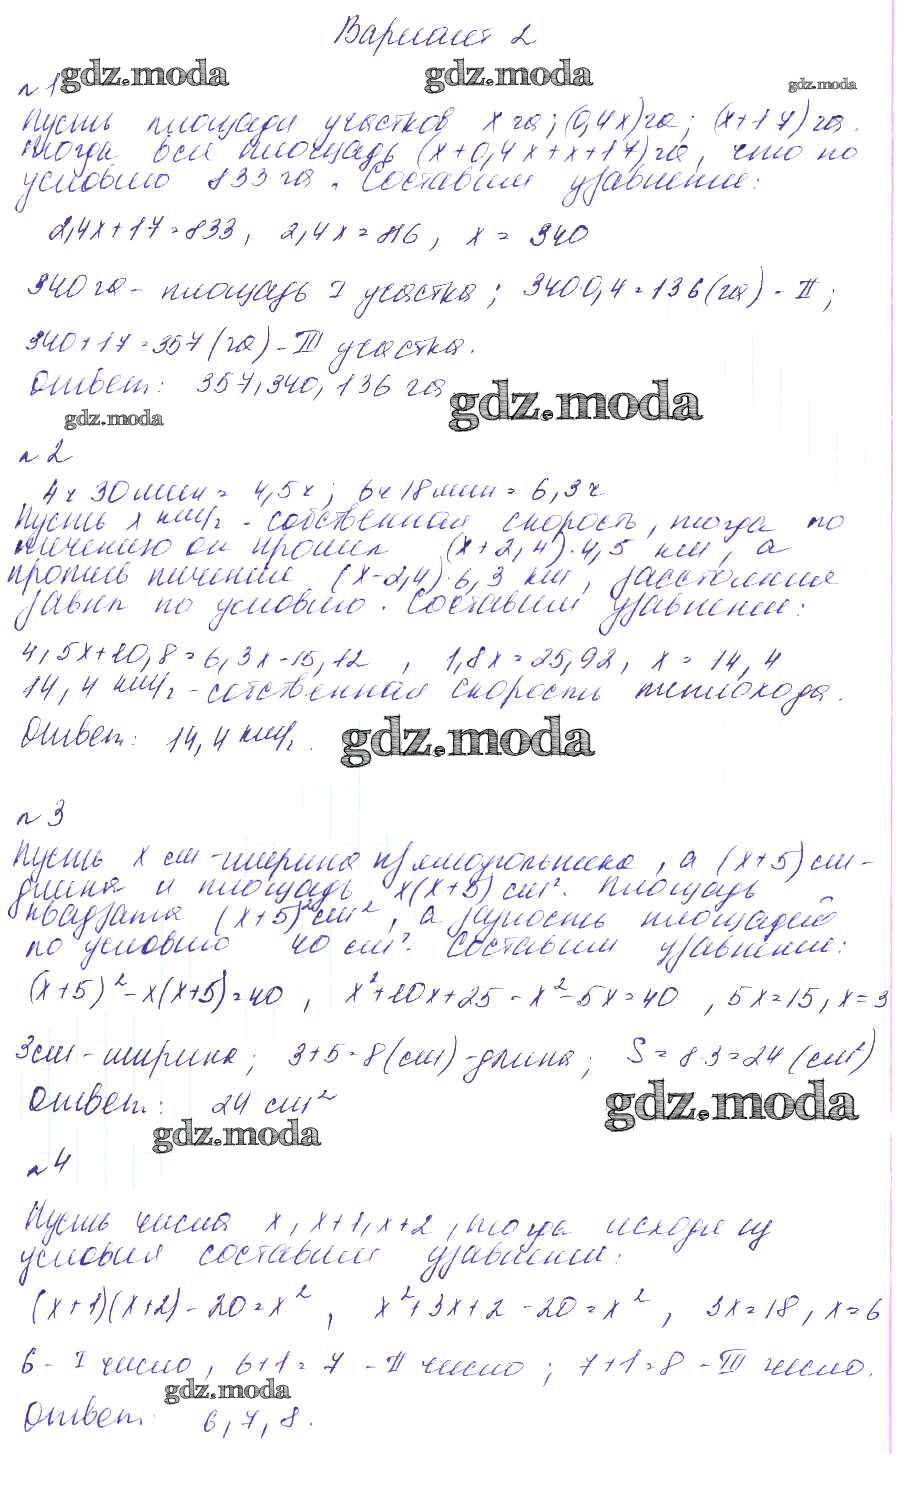 Вариант 2
gdz.moda gdz.moda gdz.moda
№1
Пусть площади участков x га; (0,4x) га; (x+17) га.
Тогда вся площадь (x+0,4x+x+17) га, что по
условию 833 га. Составим уравнение:
2,4x+17=833, 2,4x=816, x=340
340 га - площадь I участка; 340·0,4=136 (га) - II;
340+17=357 (га) - III участка.
Ответ: 357, 340, 136 га
gdz.moda
gdz.moda
№2
4ч 30мин = 4,5ч; 6ч 18мин = 6,3ч
Пусть x км/ч - собственная скорость, тогда по
течению он прошел (x+2,4)·4,5 км, а
против течения (x-2,4)·6,3 км, расстояния
равны по условию. Составим уравнение:
4,5x+10,8=6,3x-15,12, 1,8x=25,92, x=14,4
14,4 км/ч - собственная скорость теплохода.
Ответ: 14,4 км/ч.
gdz.moda
№3
Пусть x см - ширина прямоугольника, а (x+5) см -
длина и площадь x(x+5) см². Площадь
квадрата (x+5)² см², а разность площадей
по условию 40 см². Составим уравнение:
(x+5)²-x(x+5)=40, x²+10x+25-x²-5x=40, 5x=15, x=3
3см - ширина; 3+5=8 (см) - длина; S=8·3=24 (см²)
Ответ: 24 см²
gdz.moda
gdz.moda
№4
Пусть числа x, x+1, x+2, тогда исходя из
условия составим уравнение:
(x+1)(x+2)-20=x², x²+3x+2-20=x², 3x=18, x=6
6 - I число, 6+1=7 - II число; 7+1=8 - III число.
gdz.moda
Ответ: 6, 7, 8.